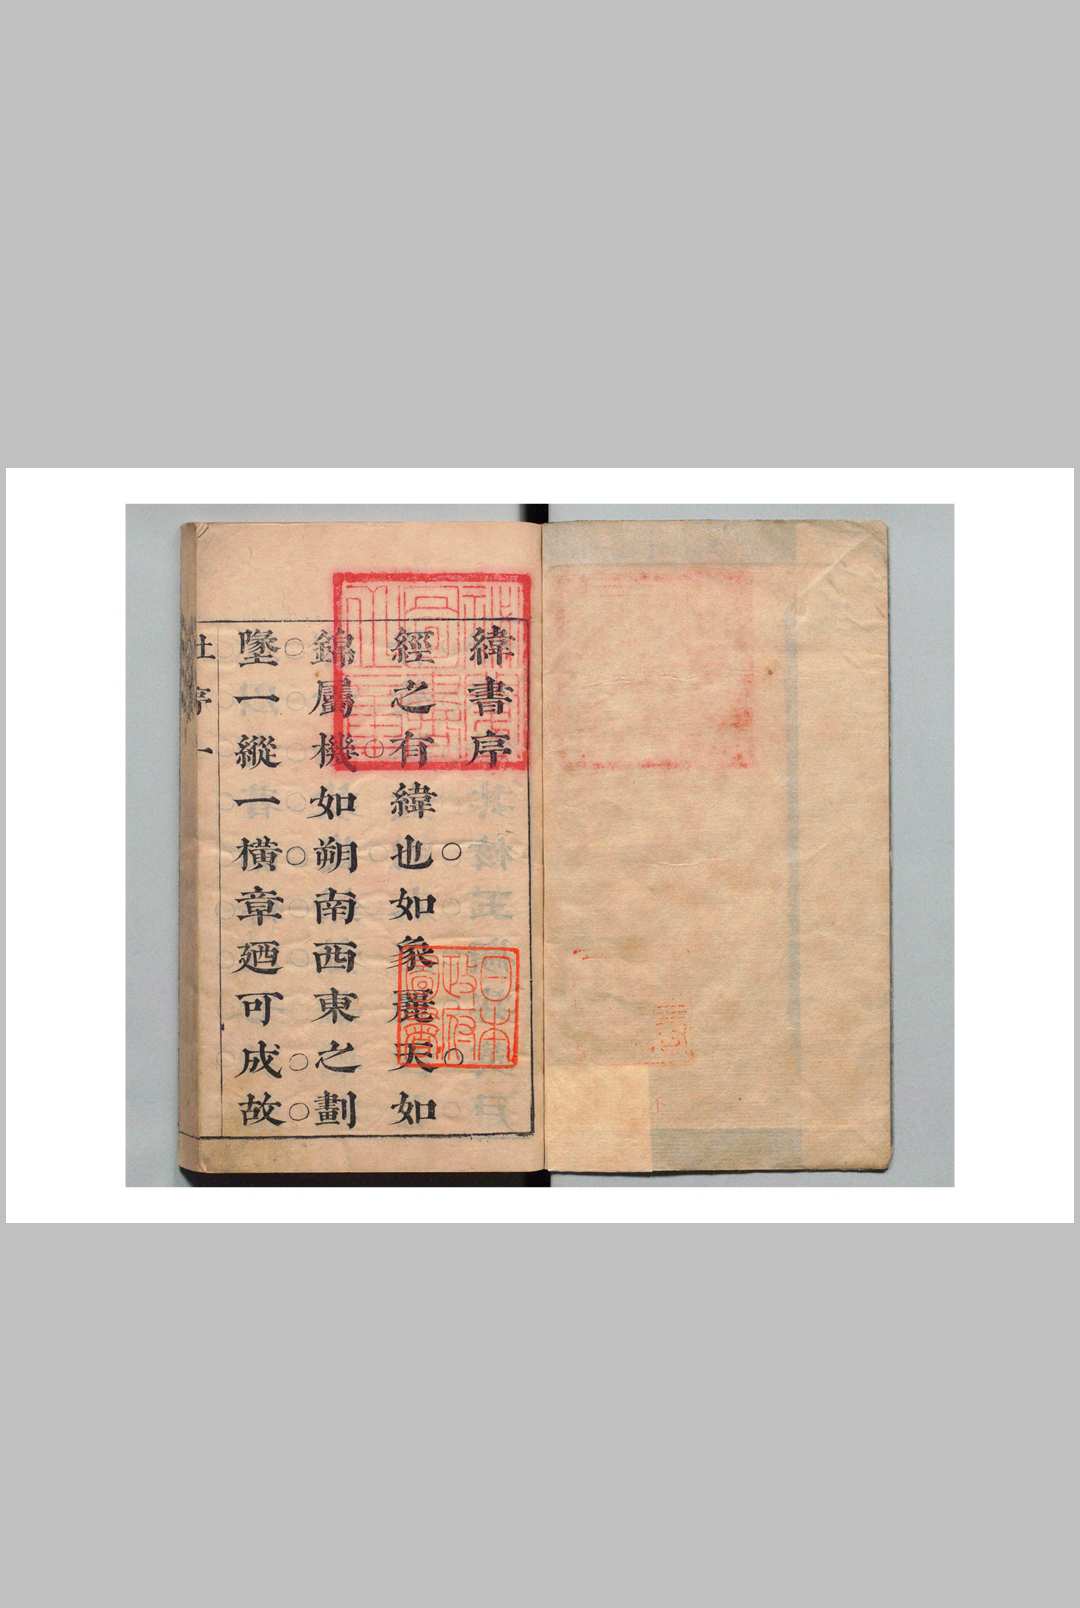 緯書序
經之有緯也如象麗天如
錦屬機如朔南西東之劃
墬一縱一橫章廼可成故
杜序 一
祕閣圖書之章
日本政府圖書